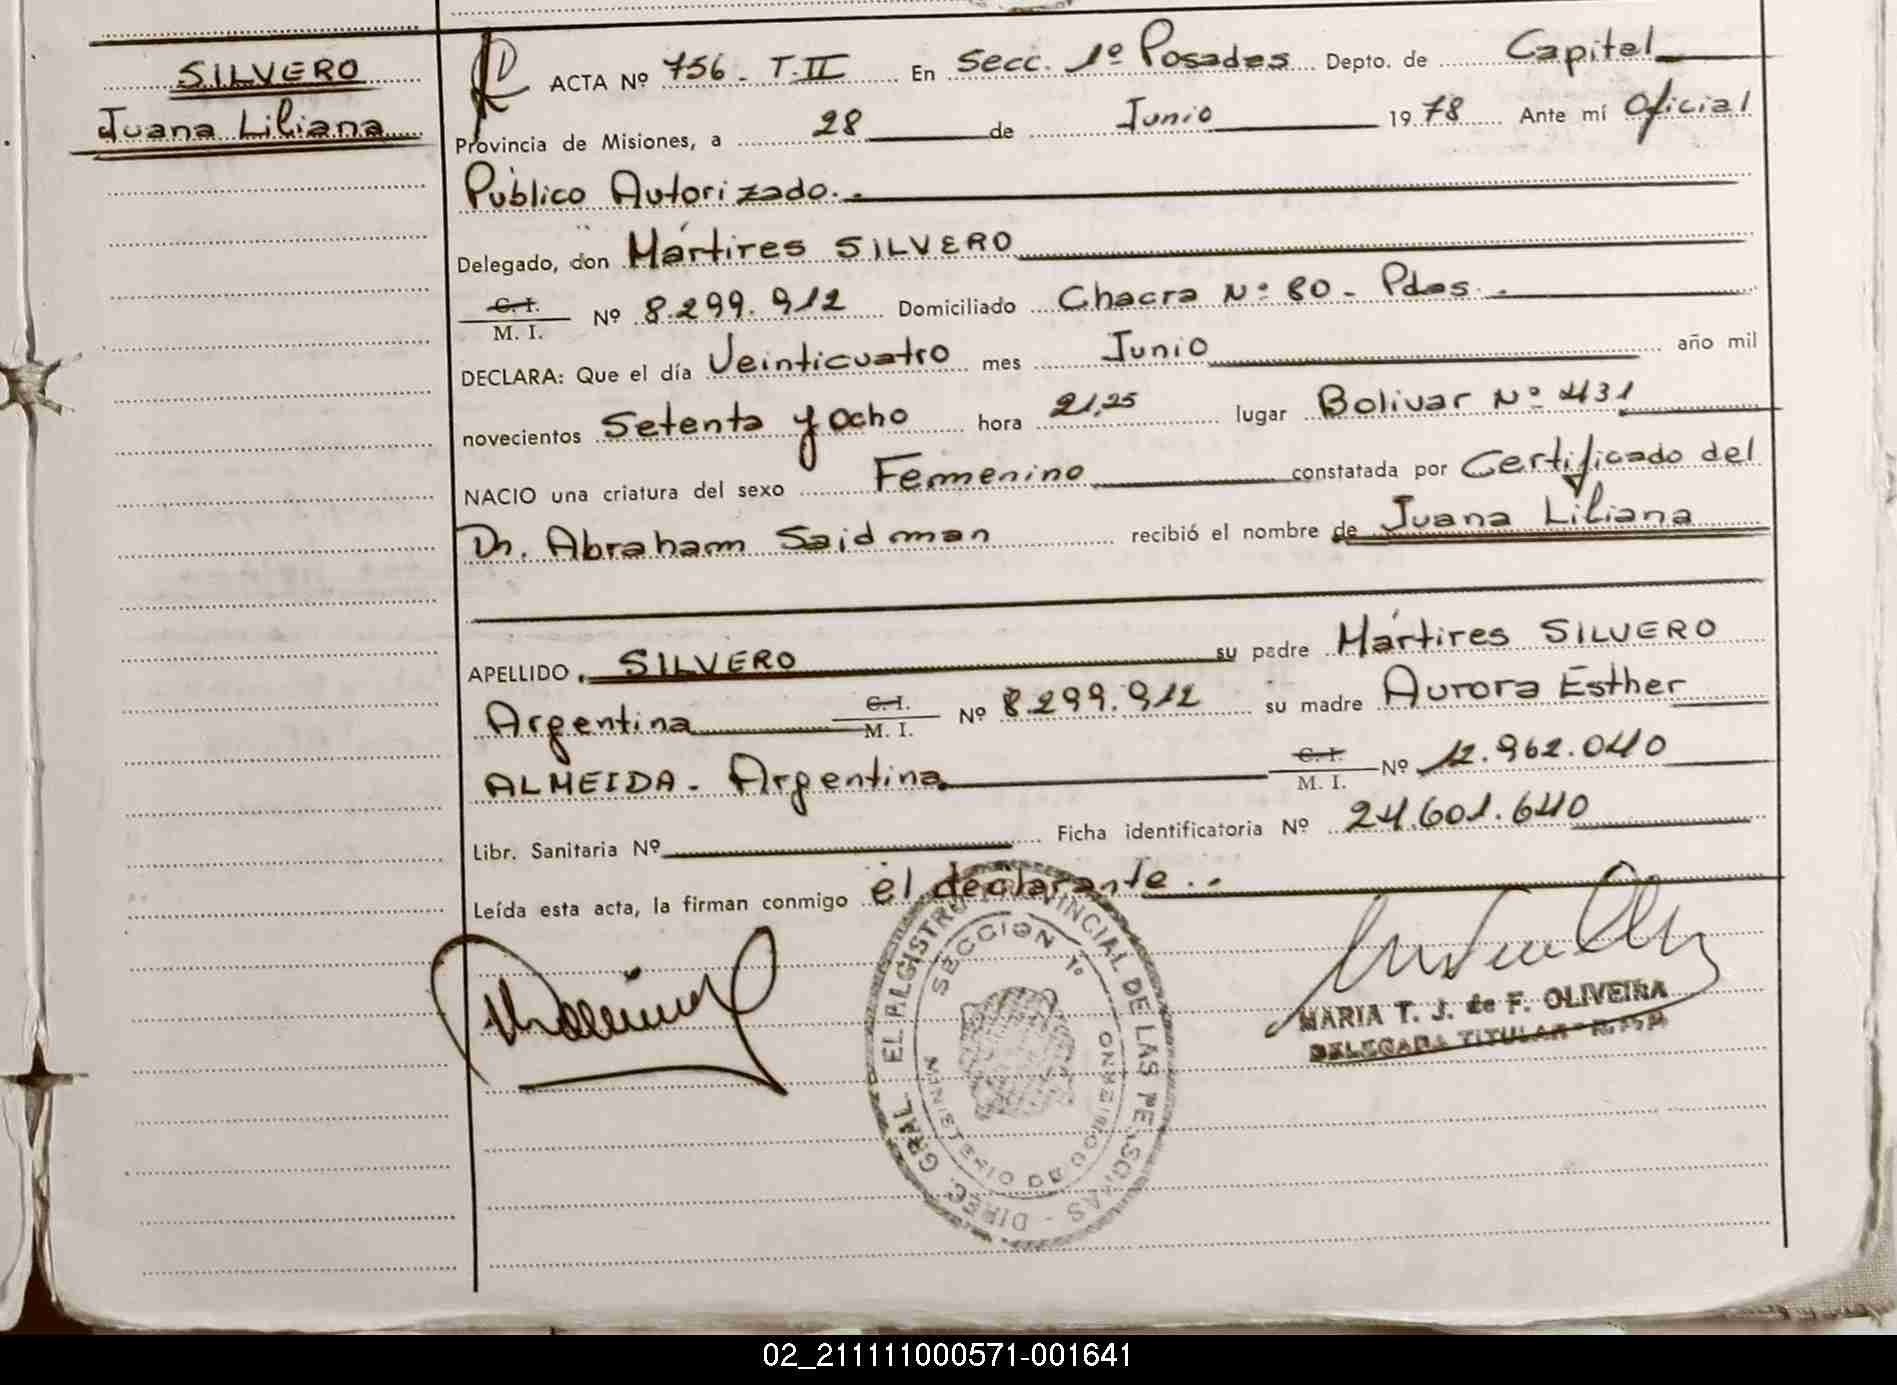 SILVERO
Juana Liliana
ACTA Nº 756 - T. II En Secc. 1º Posadas Depto. de Capital
Provincia de Misiones, a 28 de Junio 1978 Ante mí Oficial
Público Autorizado.-
Delegado, don Mártires SILVERO
C. I.
M. I. Nº 8.299.912 Domiciliado Chacra Nº 80 - Pdas.-
DECLARA: Que el día Veinticuatro mes Junio año mil
novecientos Setenta y ocho hora 21,25 lugar Bolivar Nº 431
NACIO una criatura del sexo Femenino constatada por Certificado del
Dr. Abraham Saidman recibió el nombre de Juana Liliana
APELLIDO SILVERO su padre Mártires SILVERO
Argentina C. I. M. I. Nº 8.299.912 su madre Aurora Esther
ALMEIDA - Argentina C. I. M. I. Nº 12.962.040
Libr. Sanitaria Nº Ficha identificatoria Nº 24.601.640
Leída esta acta, la firman conmigo el declarante.-
DIREC. GRAL. PROVINCIAL DE LAS PERSONAS
SECCION 1º
MARIA T. J. de F. OLIVEIRA
DELEGADA TITULAR
02_211111000571-001641